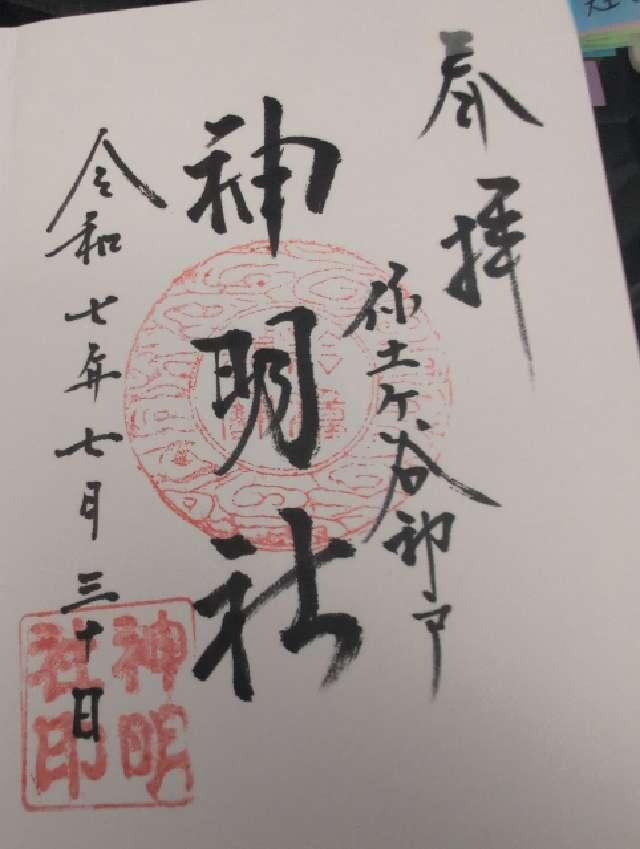 奉拝
保土ケ谷神戸
神明社
令和七年七月三十日
神明
社印